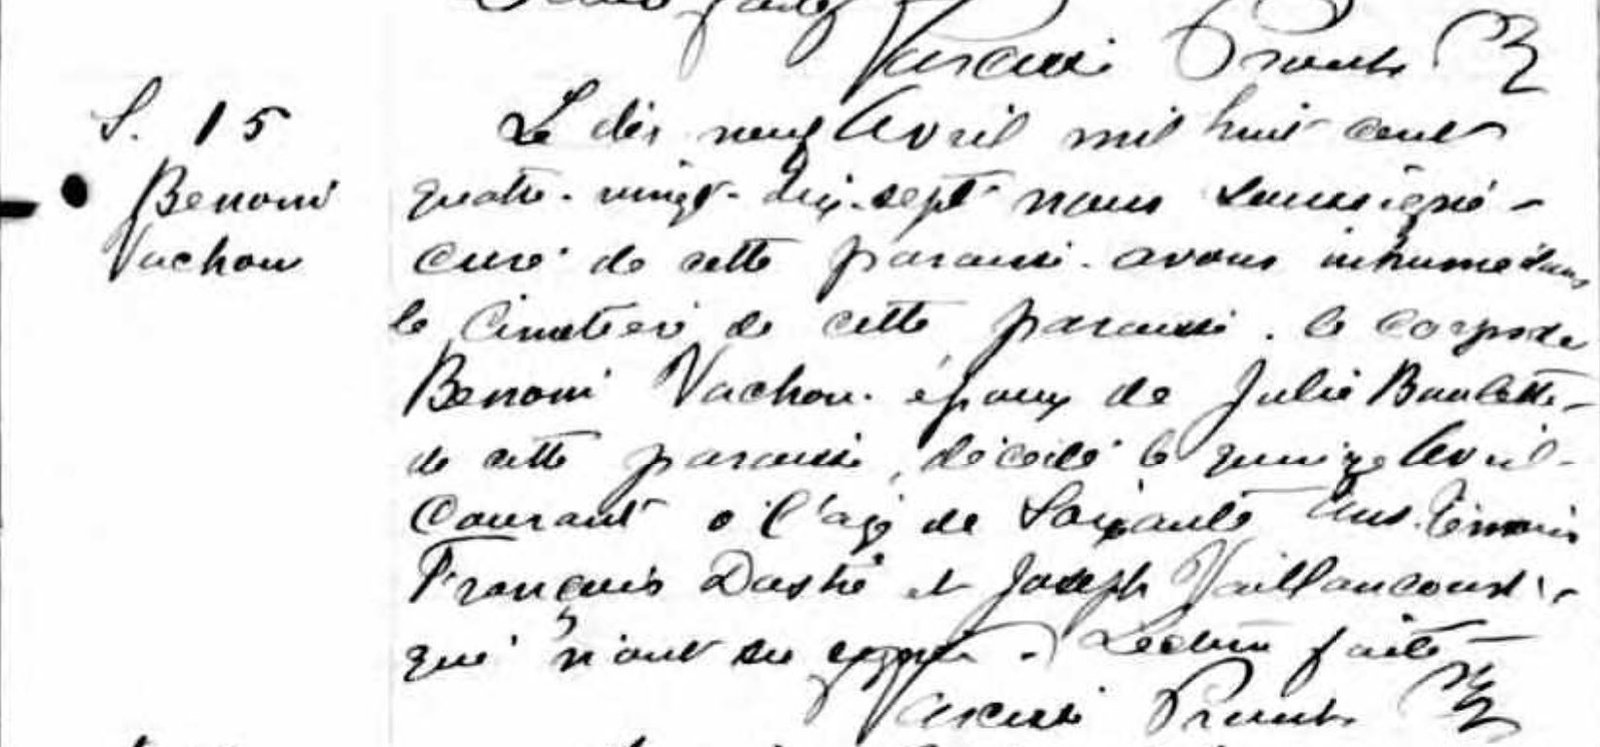 S. 15
Benoni
Vachon
Le dix neuf Avril mil huit cent
quatre-vingt-dix-sept nous soussigné
curé de cette paroisse avons inhumé dans
le Cimetière de cette paroisse. le corps de
Benoni Vachon. époux de Julie Boulette
de cette paroisse, décédé le quinze Avril
Courant à l'age de Soixante ans. Témoins
François Dostie et Joseph Vaillancourt
qui n'ont su signer. Lecture faite